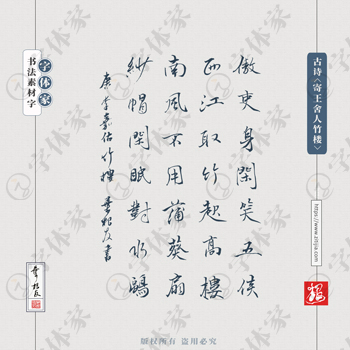 古诗〈寄王舍人竹楼〉
https://www.ztjia.com
傲吏身閑笑五侯
西江取竹起高樓
南風不用蒲葵扇
紗帽閑眠對水鷗
唐李嘉佑竹樓
字体家
书法素材字
字体家
版权所有 盗用必究